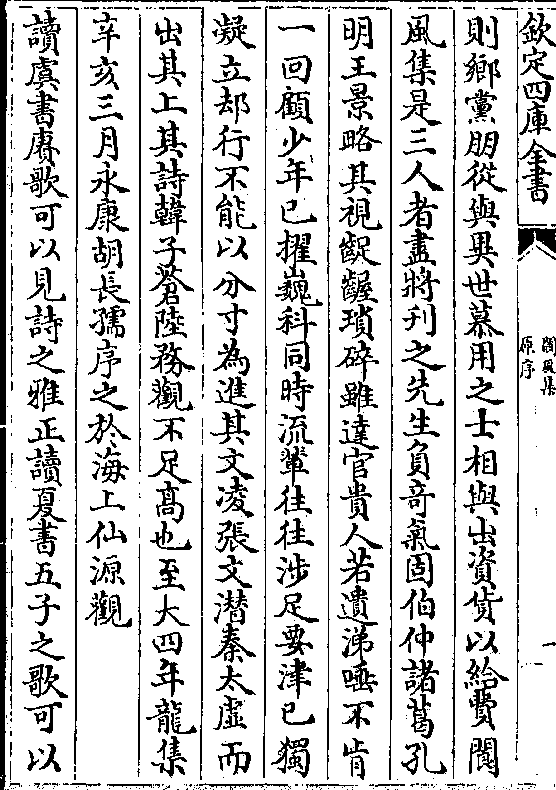 欽定四庫全書
閬風集
原序
一
則鄉黨朋從與異世慕用之士相與出資貨以給費閬
風集是三人者盡將刋之先生負竒氣固伯仲諸葛孔
明王景略其視齪齷瑣碎雖達官貴人若遺涕唾不肯
一回顧少年已擢巍科同時流輩往往涉足要津已獨
凝立却行不能以分寸為進其文凌張文潛秦太虛而
出其上其詩韓子蒼陸務觀不足髙也至大四年龍集
辛亥三月永康胡長孺序之於海上仙源觀
讀虞書賡歌可以見詩之雅正讀夏書五子之歌可以